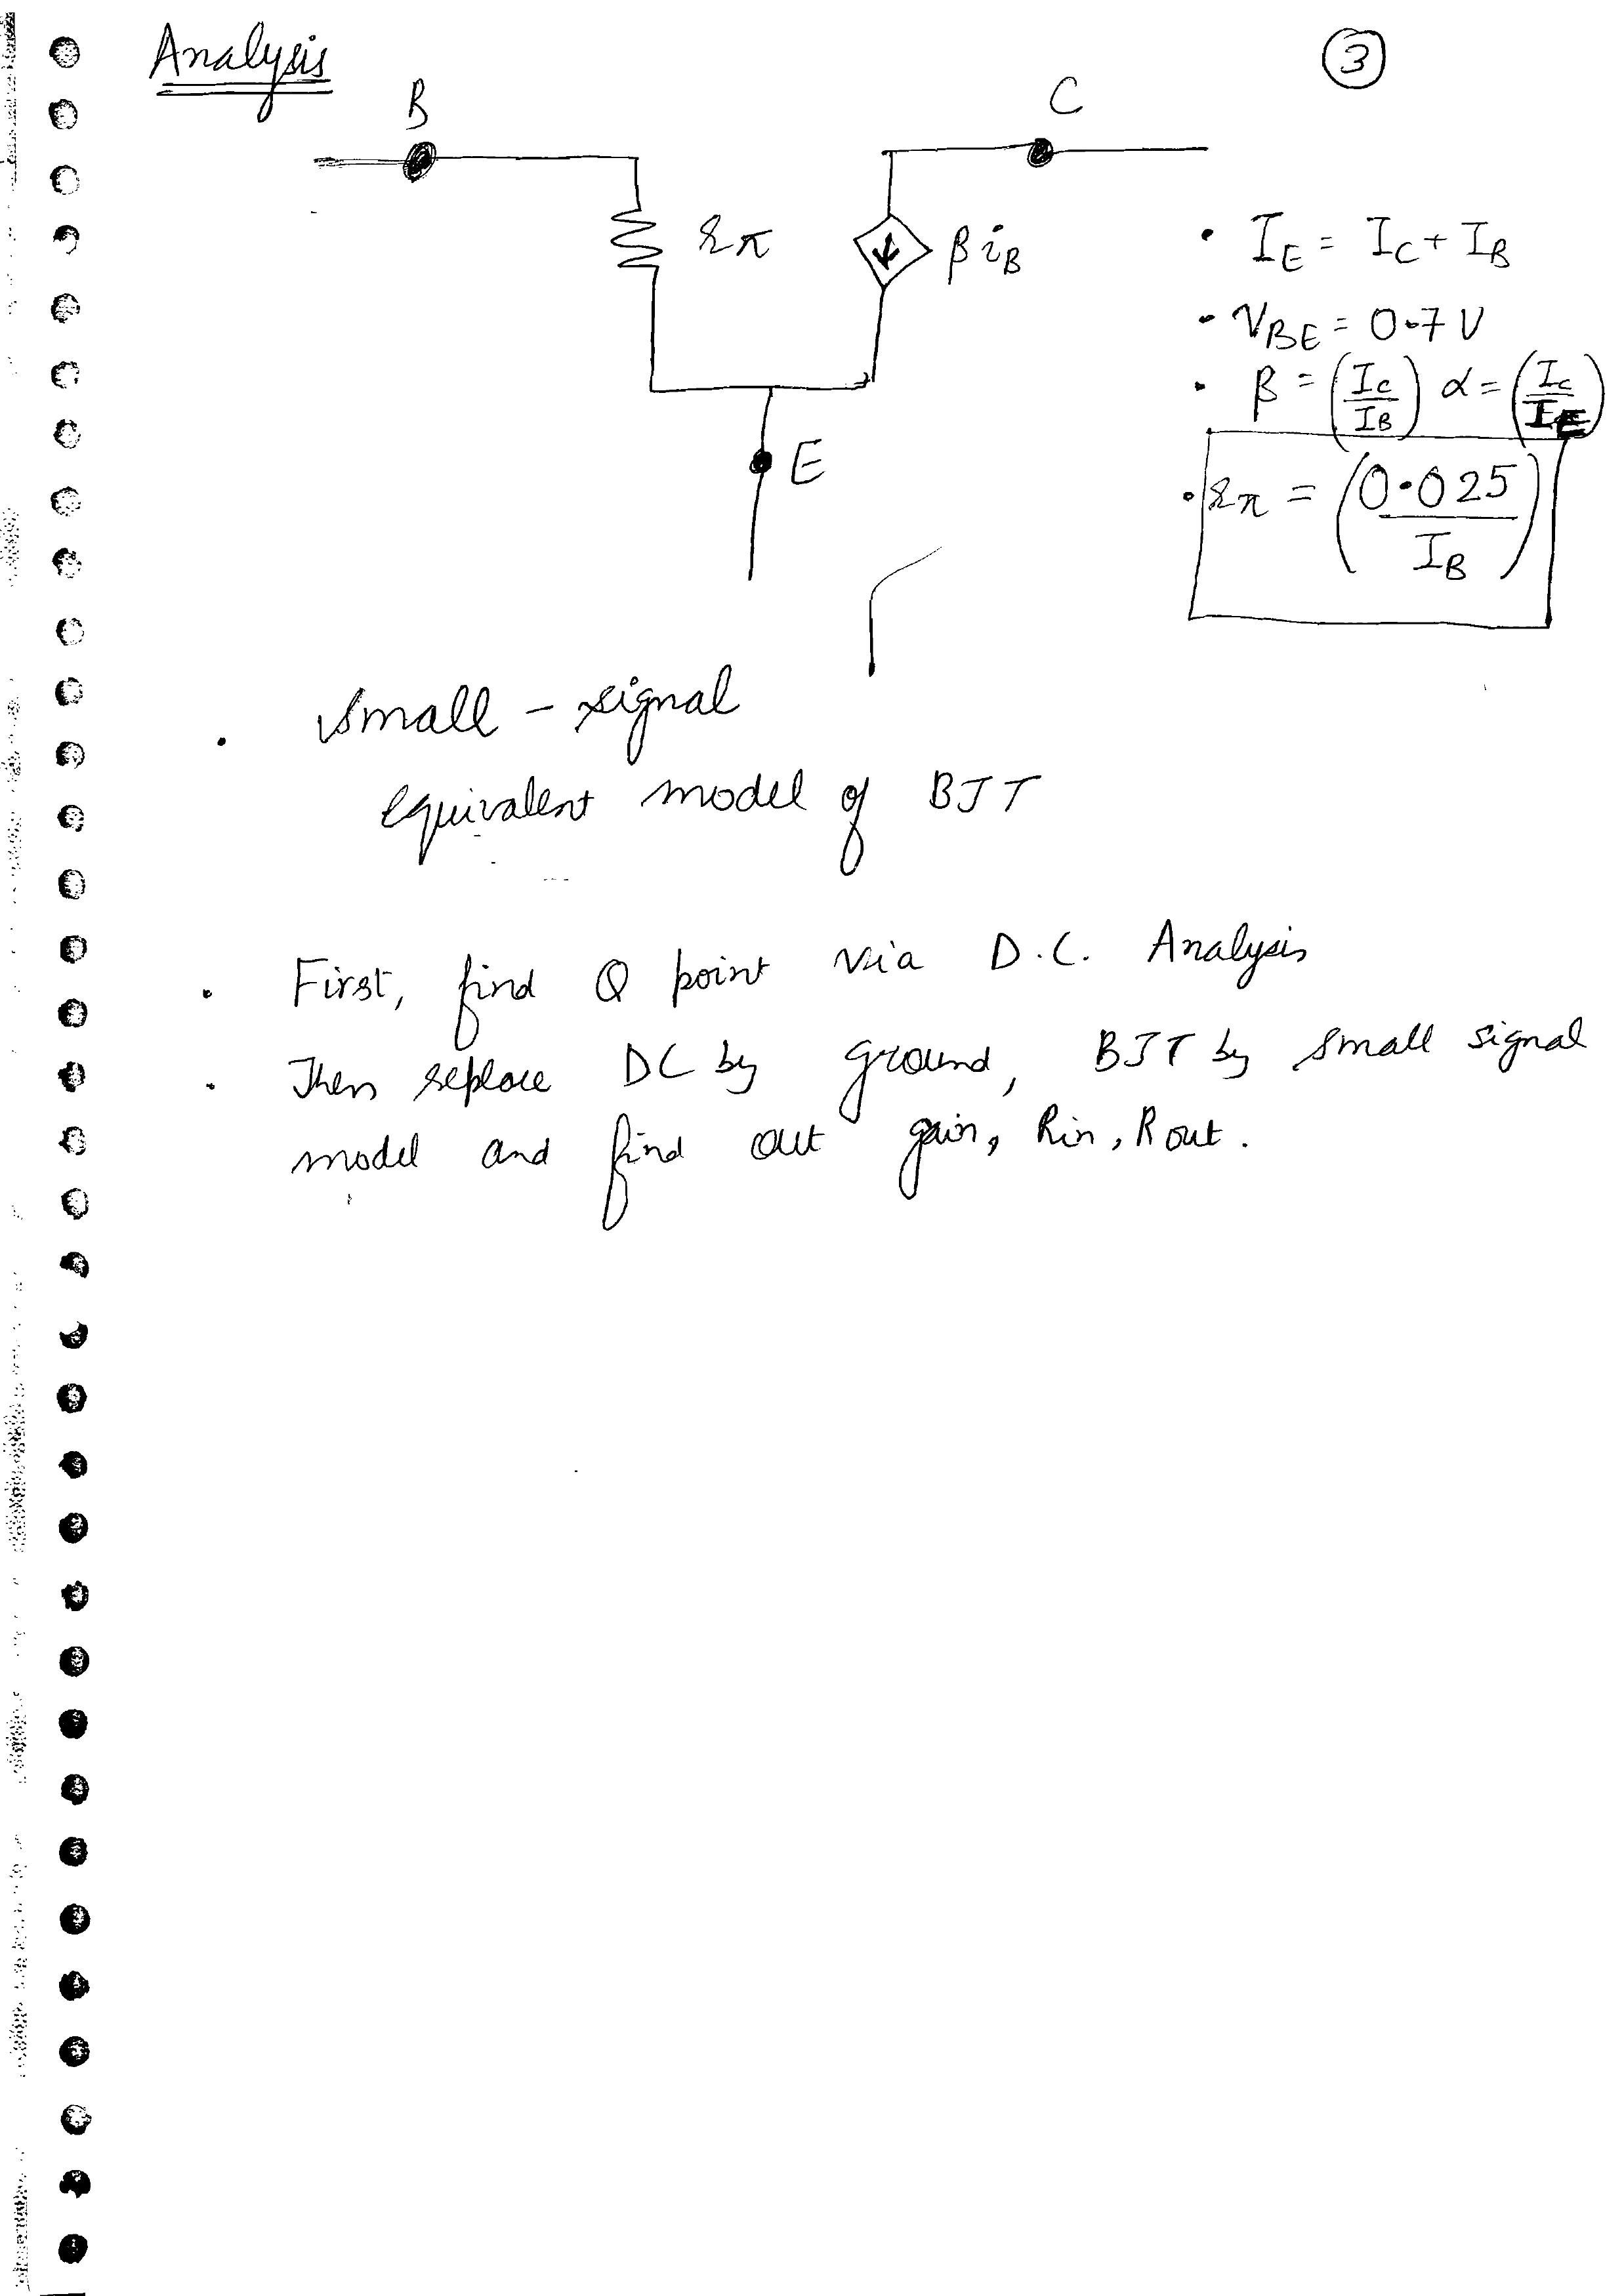 Analysis
3
B
C
rπ
β iB
E
• IE = IC + IB
• VBE = 0.7 V
• β = (IC/IB) α = (IC/IE)
• rπ = (0.025/IB)
• Small - signal
equivalent model of BJT
• First, find Q point via D.C. Analysis
• Then replace DC by ground, BJT by small signal
model and find out gain, Rin, Rout.